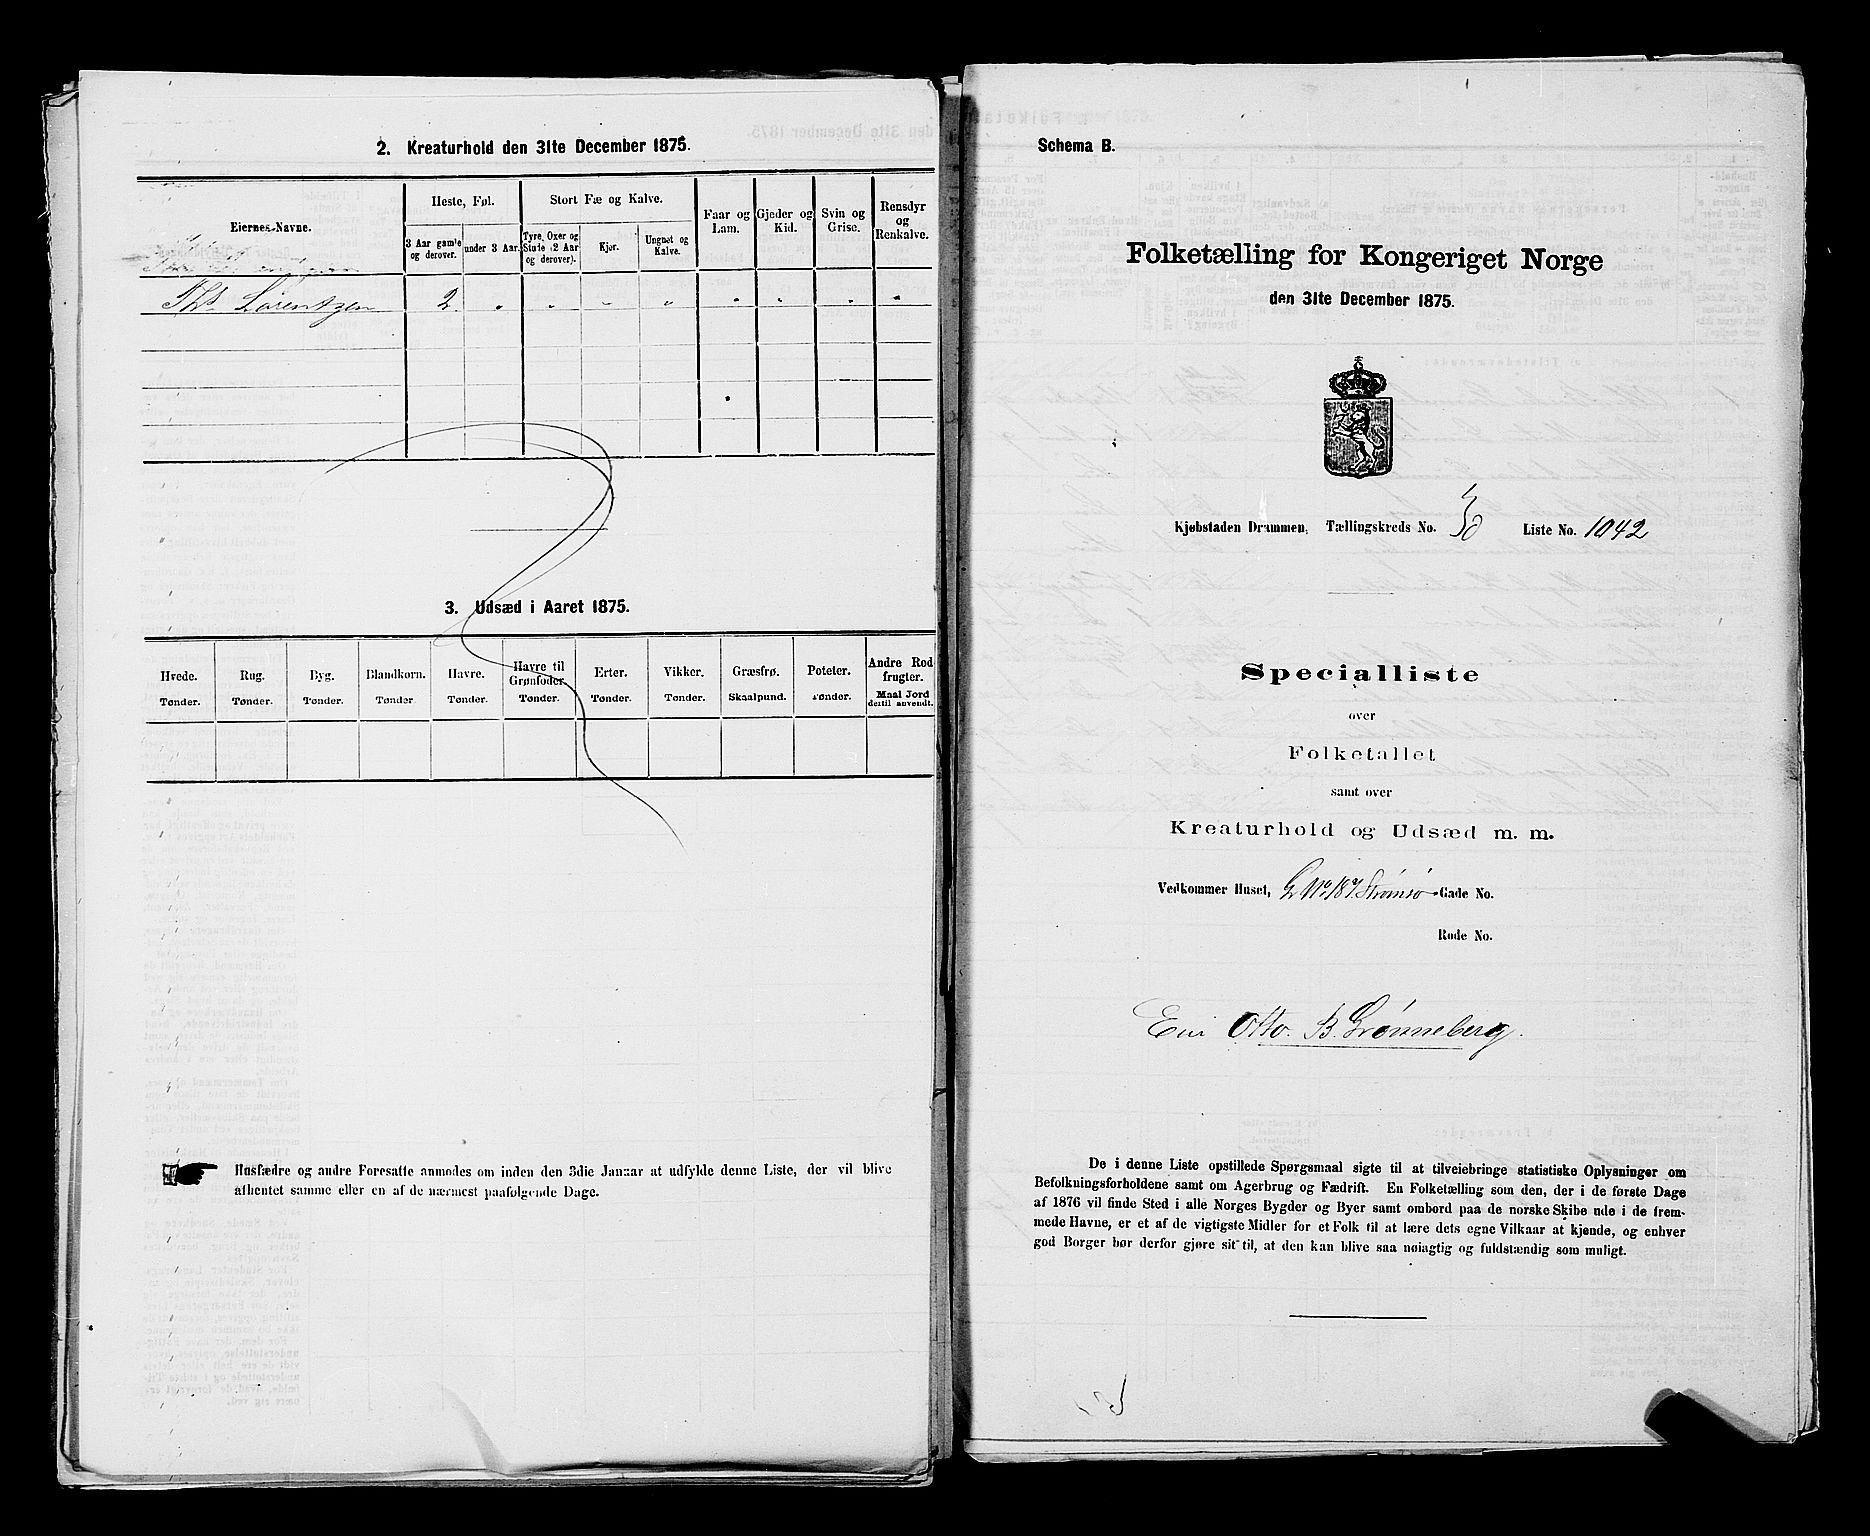 2. Kreaturhold den 31te December 1875.
Eiernes-Navne.
Heste, Føl.
3 Aar gamle og derover.
under 3 Aar.
Stort Fæ og Kalve.
Tyre, Oxer og Stude (2 Aar og derover).
Kjør.
Ungnøt og Kalve.
Faar og Lam.
Gjeder og Kid.
Svin og Grise.
Rensdyr og Renkalve.
Lorentzen 2 " " " " " " " "
3. Udsæd i Aaret 1875.
Hvede. Rug. Byg. Blandkorn. Havre. Havre til Grønfoder. Erter. Vikker. Græsfrø. Poteter. Andre Rodfrugter.
Tønder. Tønder. Tønder. Tønder Tønder. Tønder. Tønder. Tønder. Skaalpund. Tønder. Maal Jord dertil anvendt.
Husfædre og andre Foresatte anmodes om inden den 3die Januar at udfylde denne Liste, der vil blive
afhentet samme eller en af de nærmest paafølgende Dage.
Schema B.
Folketælling for Kongeriget Norge
den 31te December 1875.
Kjøbstaden Drammen, Tællingskreds No. Liste No. 1042
Specialliste
over
Folketallet
samt over
Kreaturhold og Udsæd m. m.
Vedkommer Huset, G No 187 Strømsø Gade No.
Rode No.
Eier Otto B. Grønneberg.
De i denne Liste opstillede Spørgsmaal sigte til at tilveiebringe statistiske Oplysninger om
Befolkningsforholdene samt om Agerbrug og Fædrift. En Folketælling som den, der i de første Dage
af 1876 vil finde Sted i alle Norges Bygder og Byer samt ombord paa de norske Skibe ude i de frem-
mede Havne, er et af de vigtigste Midler for et Folk til at lære dets egne Vilkaar at kjende, og enhver
god Borger bør derfor gjøre sit til, at den kan blive saa nøiagtig og fuldstændig som muligt.